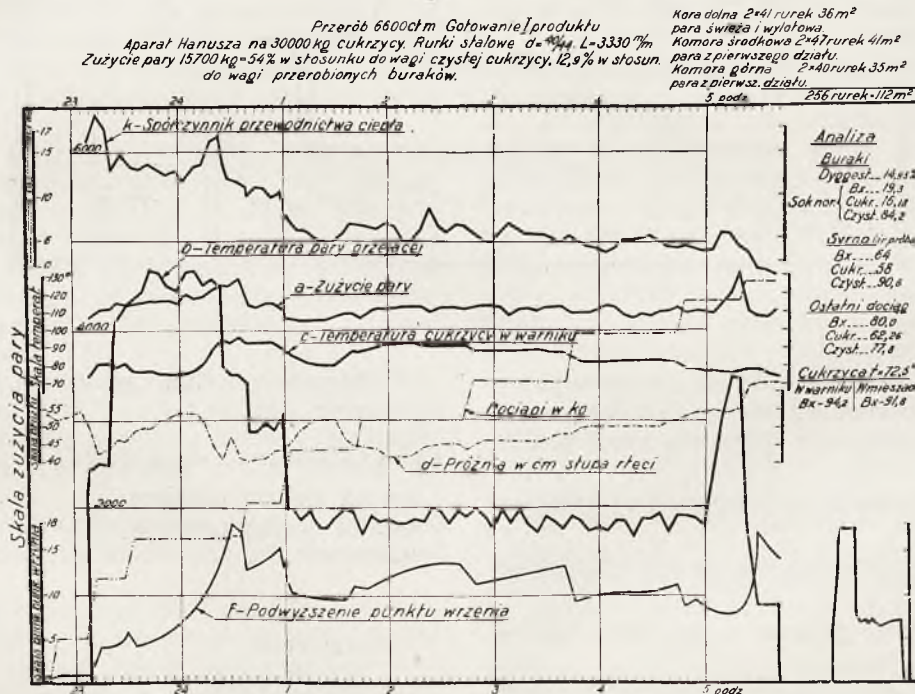 Przerób 6600ctm Gotowanie I produktu
Aparat Hanusza na 30000 kg cukrzycy. Rurki stalowe d=40/44 L=3330 m/m
Zużycie pary 15700 kg=54% w stosunku do wagi czystej cukrzycy, 12,9% w stosun.
do wagi przerobionych buraków.
Kora dolna 2×41 rurek 36m²
para świeża i wylotowa.
Komora środkowa 2×47 rurek 41m²
para z pierwszego działu.
Komora górna 2×40 rurek 35m²
para z pierwsz. działu.
256 rurek=112m²
23 24 1 2 3 4 5 godz
k-Spółczynnik przewodnictwa ciepła
17
15
10
6
0
5000
b-Temperatura pary grzejącej
a-Zużycie pary
c-Temperatura cukrzycy w warniku
Pociągi w ko
d-Próżnia w cm słupa rtęci
f-Podwyższenie punktu wrzenia
130°
120
110
100
90
80
70
55
50
45
40
4000
3000
18
15
10
5
Skala zużycia pary
Skala temperat
23 24 1 2 3 4 5 godz
Analiza
Buraki
Dygest... 14,93%
Sok nor.
Bx... 19,3
Cukr. 16,18
Czyst. 84,2
Bx.... 64
Cukr... 58
Czyst... 90,6
Ostatni dociąg
Bx.... 80,0
Cukr... 62,26
Czyst... 77,8
Cukrzyca t=72,5°
W warniku Wmieszad
Bx-94,2 Bx-91,8